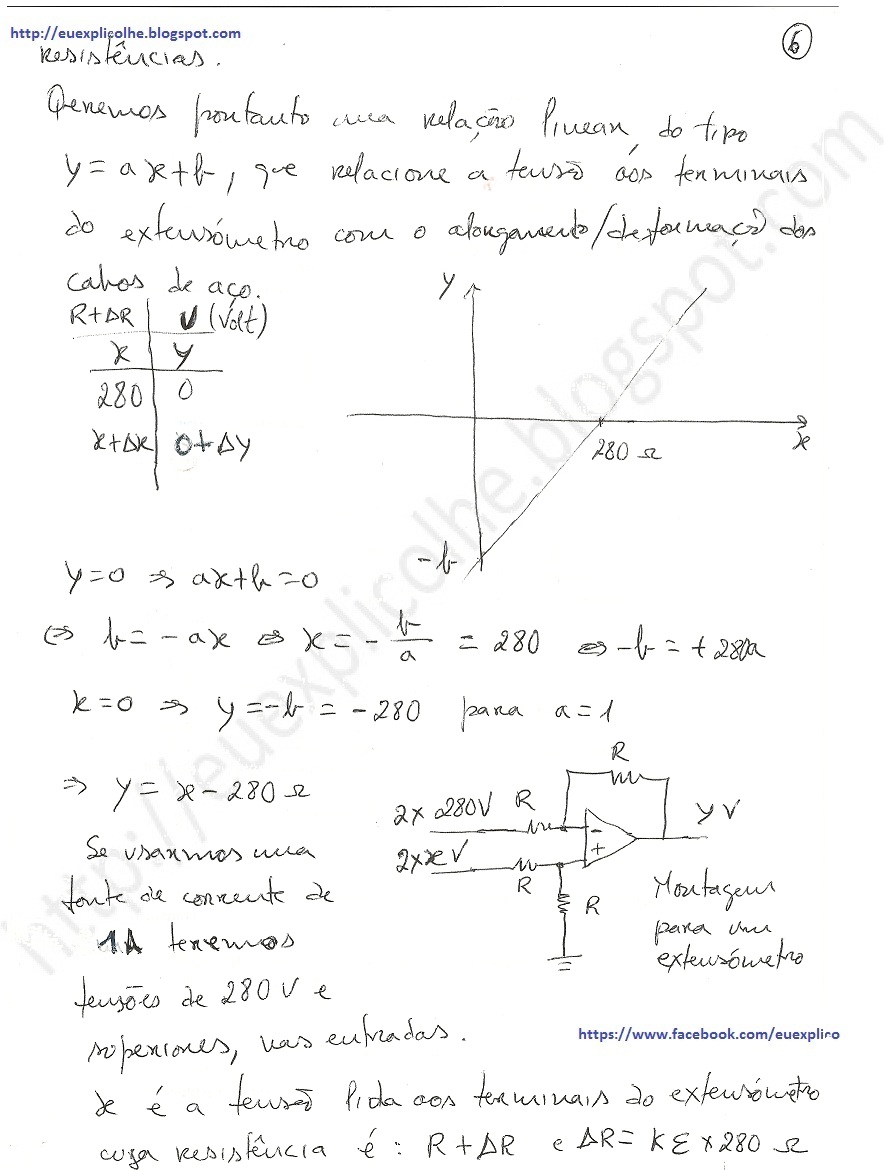 http://euexplicolhe.blogspot.com
6
resistências.
Queremos portanto uma relação linear, do tipo
y = ax+b, que relacione a tensão aos terminais
do extensómetro com o alongamento/deformação dos
cabos de aço.
R+ΔR | U (Volt)
x | y
280 | 0
x+Δx | 0+Δy
y
280 Ω
x
-b
y=0 ⇒ ax+b=0
⇔ b=-ax ⇔ x=-b/a = 280 ⇔ -b=+280a
x=0 ⇒ y=-b=-280 para a=1
⇒ y= x-280 Ω
Se usarmos uma
fonte de corrente de
1A teremos
tensões de 280V e
superiores, nas entradas.
R
2x280V R
- 
yV
2xxV
+
R
R
Montagem
para um
extensómetro
https://www.facebook.com/euexpliro
x é a tensão lida aos terminais do extensómetro
cuja resistência é: R+ΔR e ΔR= KƐx280 Ω
http://euexplicolhe.blogspot.com